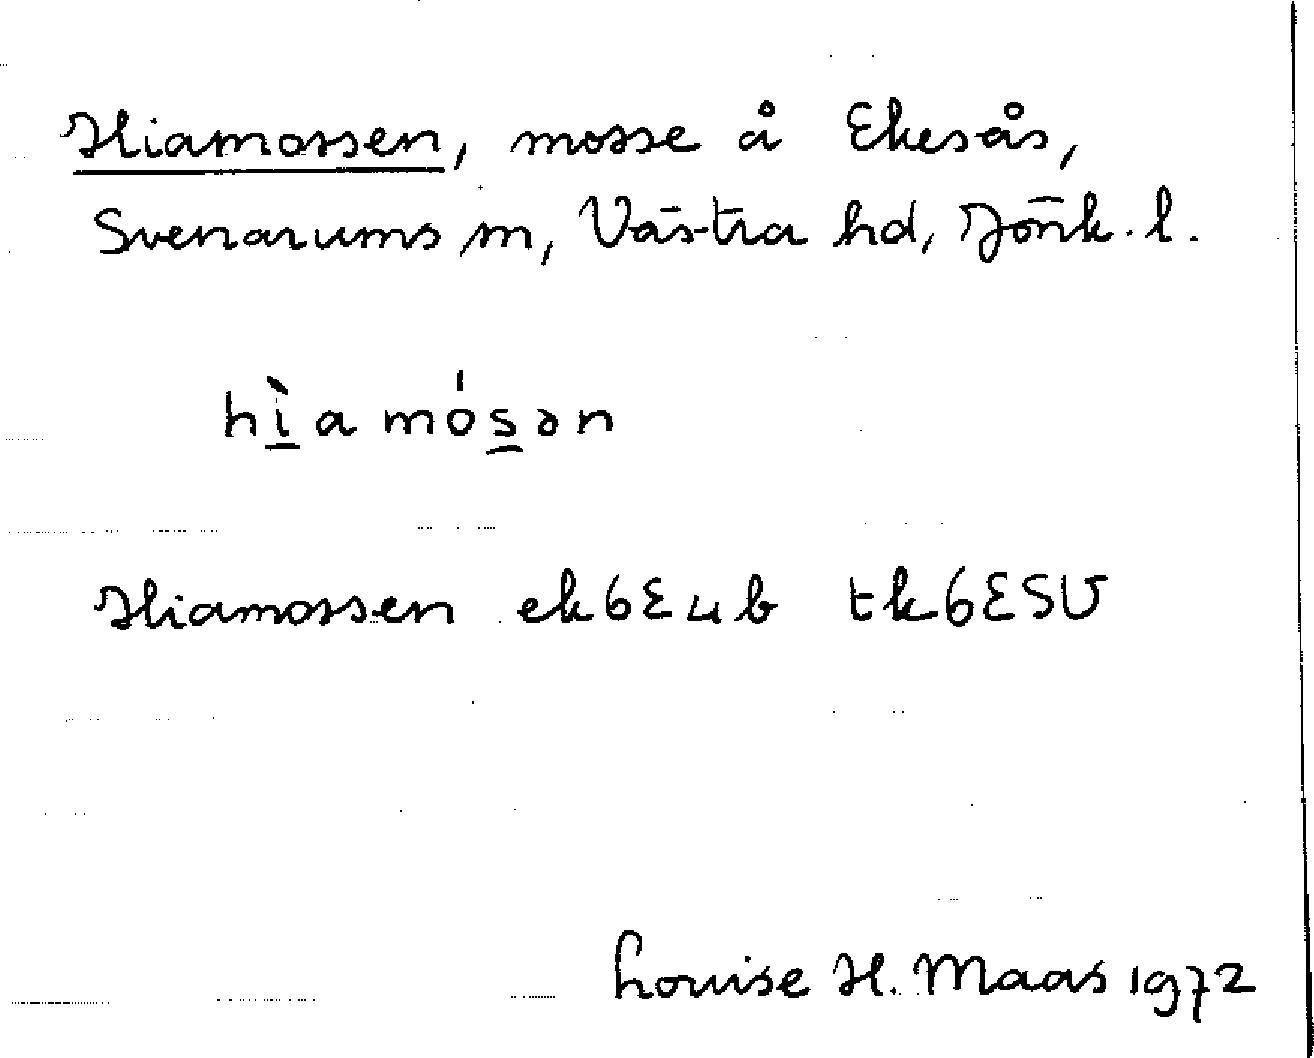 Hiamossen, mosse å Ekesås,
Svenarums sn, Västra hd, Jönk. l.
hìamósən
Hiamossen ek6E4b tk6E5U
Louise H. Maas 1972